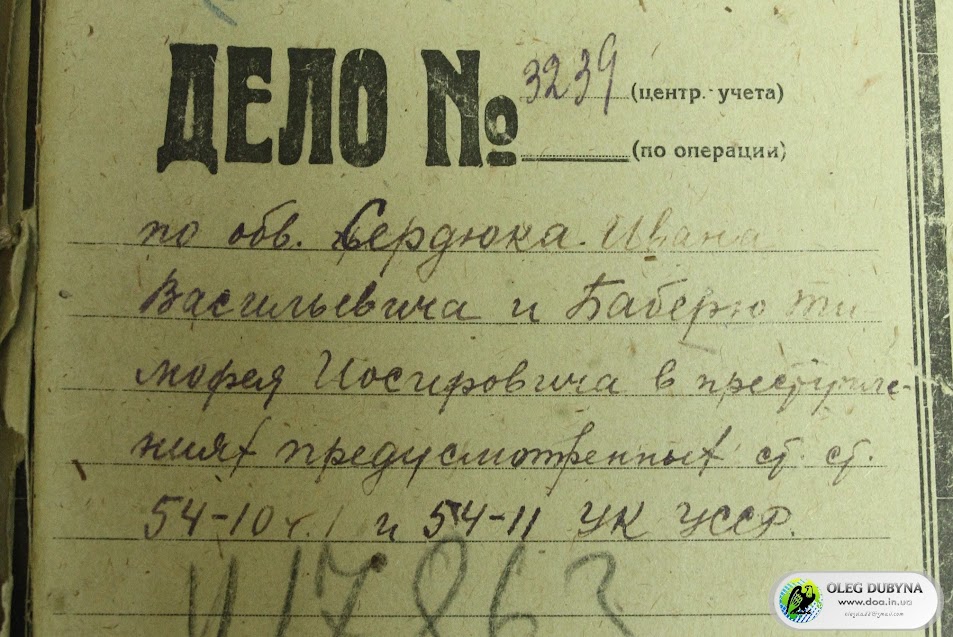 ДЕЛО № 3239 (центр. учета)
(по операции)
по обв. Сердюка Ивана
Васильевича и Баберю Ти
мофея Иосифовича в преступле-
ниях предусмотренных ст. ст.
54-10 ч. 1 и 54-11 УК УССР.
117863
OLEG DUBYNA
www.doa.in.ua